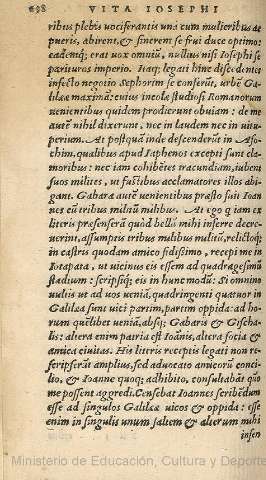 698 VITA IOSEPHI
ribus plebis vociferantis unà cum mulieribus ac
pueris, abirent, & sinerent se frui duce optimo:
eademq; erat vox omniũ, nullius nisi Iosephi se
parituros imperio. Itaq; legati hinc discedentes
infecto negotio Sephorim se conferũt, urbẽ Ga
lilææ maximã: cuius incolæ studiosi Romanorum
venientibus quidem prodierunt obuiam: de me
autẽ nihil dixerunt, nec in laudem nec in vitu-
perium. At postquã inde descenderũt in Aso-
chim, qualibus apud Iaphenos excepti sunt cla
moribus: nec iam cohibẽtes iracundiam, iubent
suos milites, ut fustibus acclamatores illos abi-
gant. Gabara autẽ venientibus præsto fuit Ioan
nes cũ tribus milium militibus. At ego q iam ex
literis præsenserã quòd bellũ mihi inferre decre-
uerint, assumptis tribus milibus militũ, relictoq;
in castris quodam amico fidissimo, recepi me in
Iotapata, ut vicinus eis essem ad quadragesimũ
stadium: scripsiq; eis in hunc modũ: Si omnino
vultis ut ad vos veniã, quadringenti quatuor in
Galilæa sunt vici partim, partim oppida: ad ho-
rum quẽlibet veniã, absq; Gabaris & Gischa-
lis: altera enim patria est Ioãnis, altera socia &
amica ciuitas. His literis receptis legati non re-
scripserũt amplius, sed aduocato amicorũ conci-
lio, & Ioanne quoq; adhibito, consultabãt quo
me possent aggredi. Censebat Ioannes scribẽdum
esse ad singulos Galilææ vicos & oppida: esse
enim in singulis unum saltem & alterum mihi
infen
Ministerio de Educación, Cultura y Deporte